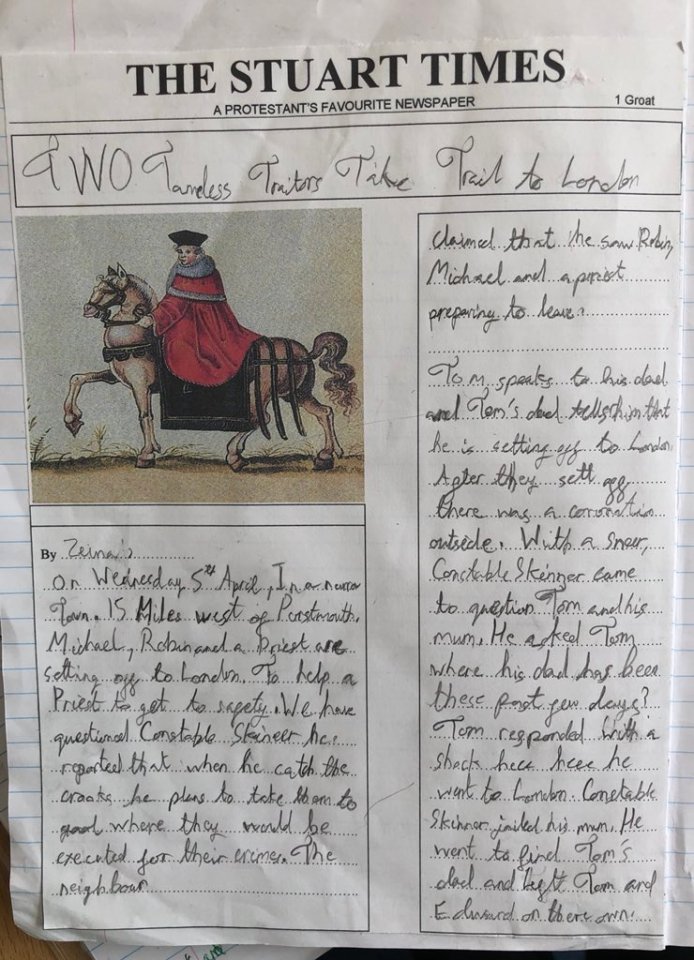 THE STUART TIMES
A PROTESTANT'S FAVOURITE NEWSPAPER
1 Groat
TWO Tameless Traitors Take Trail to London
By Zeina's
On Wednesday 5th April, In a narrow
Town. 15 Miles west of Portsmouth.
Michael, Robin and a Priest are
setting off to London. To help a
Priest to get to safety. We have
questioned Constable Skineer he
reported that when he catch the
crooks he plans to take them to
where they would be
executed for their crimes. The
neighbour
claimed that he saw Robin,
Michael and a priest
preparing to leave.
Tom speaks to his dad
and Tom's dad tells him that
he is setting off to London.
After they sett off
there was a coronation
outside. With a sneer,
Constable Skinner came
to question Tom and his
mum. He asked Tom
where his dad has been
these past few days?
Tom responded with a
he
went to London. Constable
Skinner jailed his mum. He
went to find Tom's
dad and left Tom and
Edward on there own.